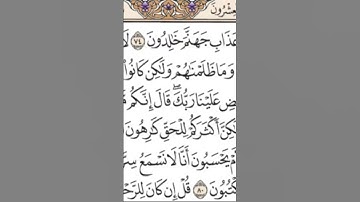 عَذَابِ جَهَنَّمَ خَٰلِدُونَ ٧٤ لَا
وَمَا ظَلَمْنَٰهُمْ وَلَٰكِن كَانُوا
ضِ عَلَيْنَا رَبُّكَ قَالَ إِنَّكُم
كِنَّ أَكْثَرَكُمْ لِلْحَقِّ كَٰرِهُونَ
أَمْ يَحْسَبُونَ أَنَّا لَا نَسْمَعُ سِرَّ
كْتُبُونَ ٨٠ قُلْ إِن كَانَ لِلرَّحْ